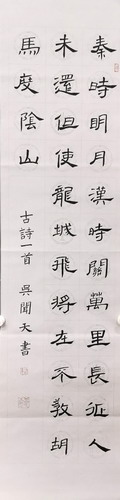 秦時明月漢時關萬里長征人
未還但使龍城飛將在不教胡
馬度陰山
古詩一首 吳聞天書